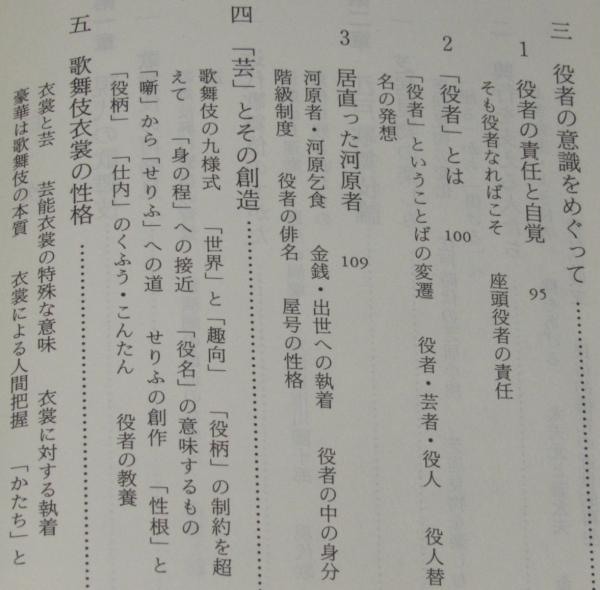 三　役者の意識をめぐって……………………
1　役者の責任と自覚　95
そも役者なればこそ　座頭役者の責任
2　「役者」とは　100
「役者」ということばの変遷　役者・芸者・役人　役人替
名の発想
3　居直った河原者　109
河原者・河原乞食　金銭・出世への執着　役者の中の身分
階級制度　役者の俳名　屋号の性格
四　「芸」とその創造……………………
歌舞伎の九様式　「世界」と「趣向」　「役柄」の制約を超
えて　「身の程」への接近　「役名」の意味するもの
「噺」から「せりふ」への道　せりふの創作　「性根」と
「役柄」　「仕内」のくふう・こんたん　役者の教養
五　歌舞伎衣裳の性格……………………
衣裳と芸　芸能衣裳の特殊な意味　衣裳に対する執着
豪華は歌舞伎の本質　衣裳による人間把握　「かたち」と